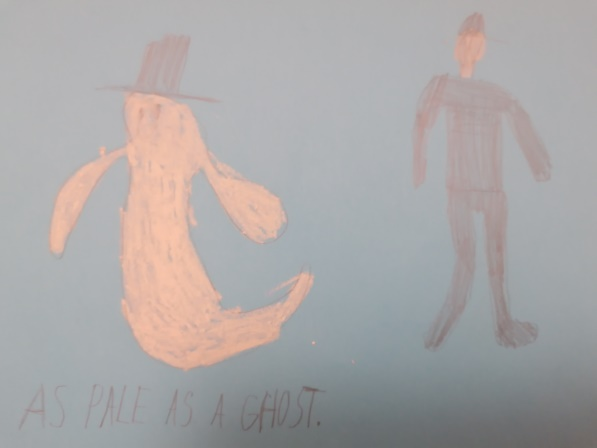 AS PALE AS A GHOST.